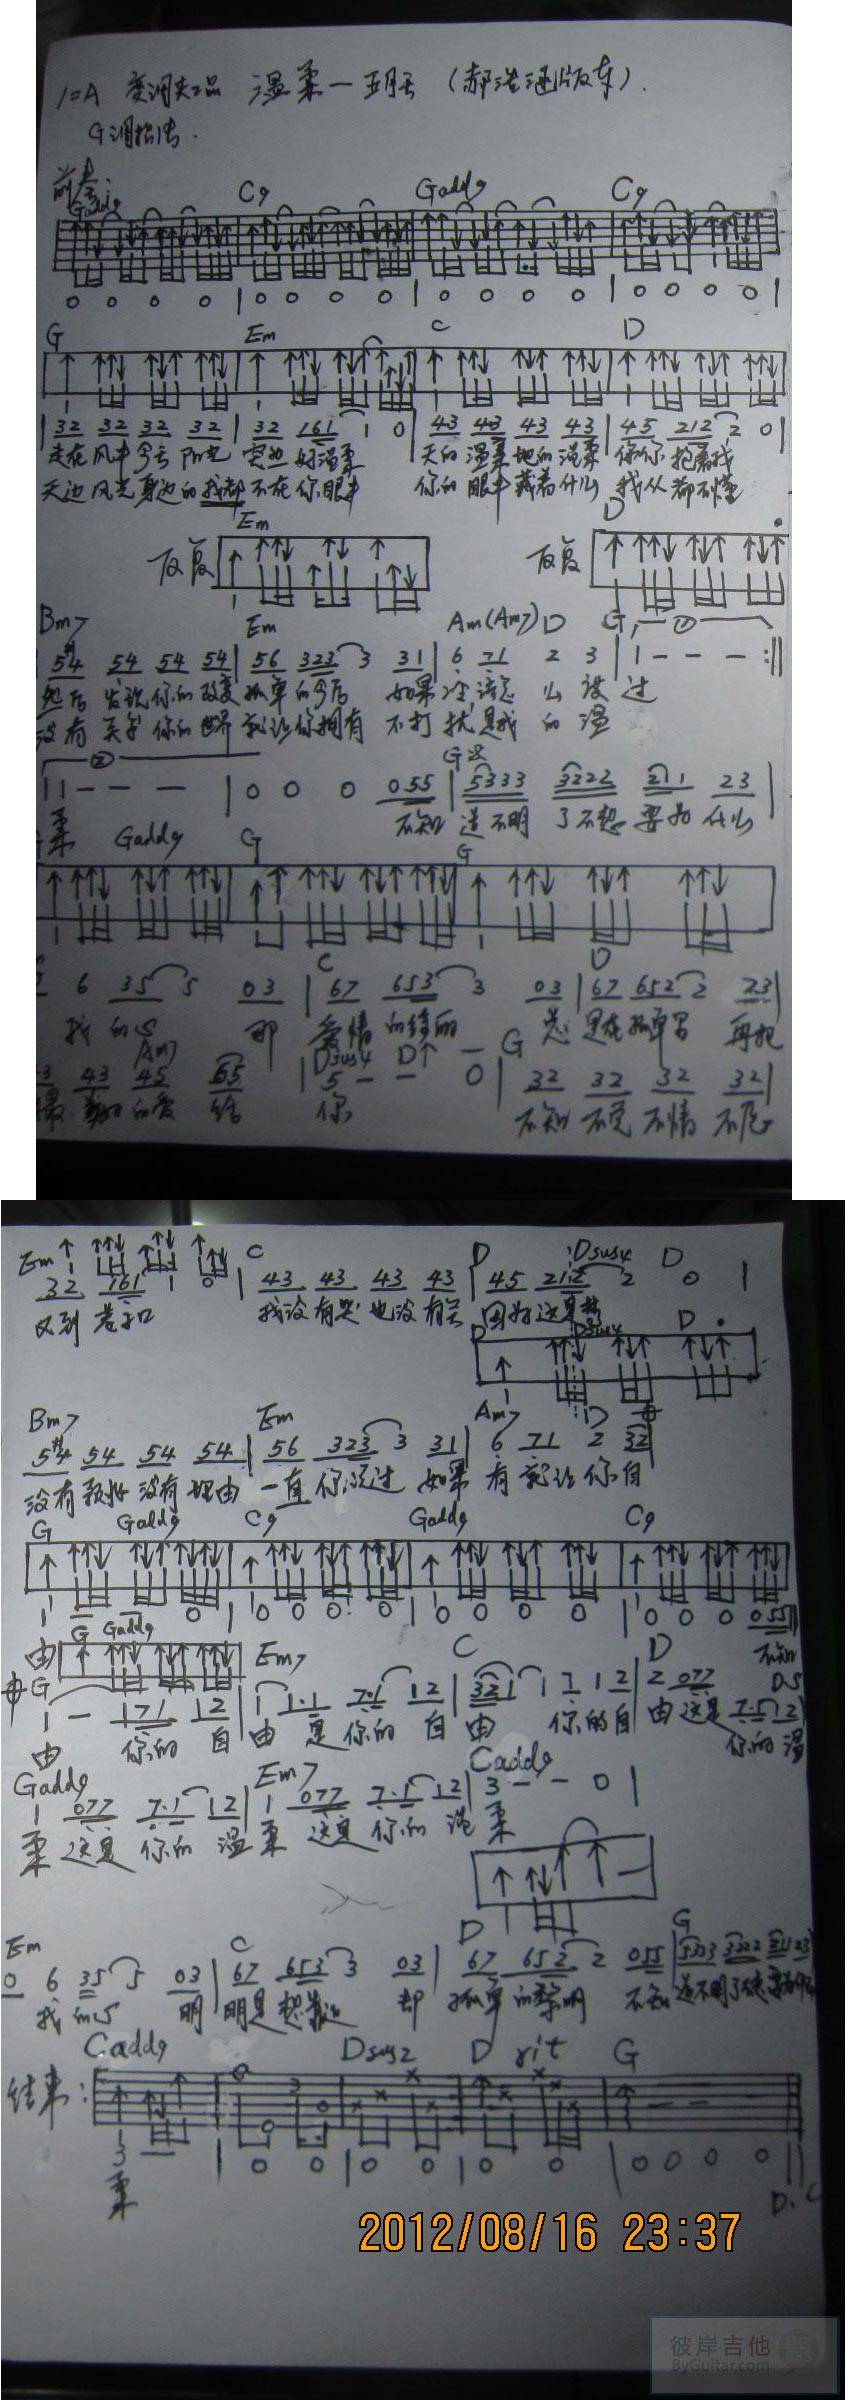 1=A 变调夹2品 温柔一五月天 (郝浩涵版本)
G调指法.
前奏:
Gadd9 C9 Gadd9 C9
0 0 0 0 | 0 0 0 0 | 0 0 0 0 | 0 0 0 0 |
G Em C D
| 32 32 32 32 | 32 161 1 0 | 43 43 43 43 | 45 212 2 0 |
走在风中今天阳光 突然好温柔 天的温柔地的温柔 像你抱着我
天边风光身边的我都不在你眼中 你的眼中藏着什么 我从都不懂
Em D
反复 反复
Bm7 Em Am(Am7) D G ①
5#4 54 54 54 | 56 323 3 31 | 6 71 2 3 | 1 - - - :||
然后发现你的改变 孤单的今后 如果冷 该怎么 该 过
没有关于你的世界 就让你拥有 不打扰 是我的温
②
|1 - - - | 0 0 0 055 | 5333 3222 211 23 |
柔 不知 道不明 了不想 要为 什么
Gadd9 G G
6 35 5 03 | 67 653 3 03 | 67 652 2 23 |
C D
我的心 那 爱情的绮丽 总 是在孤单里 再把
Am7 Dsus4 D↑ G
43 45 65 | 5 - - 0 | 32 32 32 32 |
最 美好的爱 给 你 不知 不觉 不情 不愿
Em C D Dsus4 D
32 161 1 0 | 43 43 43 43 | 45 212 2 0 |
又到巷子口 我没有哭 也没有笑 因为这是梦
D Dsus4 D
Bm7 Em Am7 D
5#4 54 54 54 | 56 323 3 31 | 6 71 2 32 |
没有预兆 没有理由 你说过 如果 有 就让你自
G Gadd9 C9 Gadd9 C9
1 0 | 0 0 0 0 | 0 0 0 0 | 0 0 0 055 ||
由 不知
G Gadd9
G Em7 C D D.S
1 - 171 12 | 1 1·1 7·1 12 | 321 1 7 12 | 2 077 7·5 12 |
由 你的 自由 是 你的 自由 你的自由 这是 你的 温
Gadd9 Em7 Cadd9
1 077 7·1 12 | 1 077 7·1 12 | 3 - - 0 |
柔 这是 你的 温柔 这是 你的 温柔
Em C D G
0 6 35 5 03 | 67 653 3 03 | 67 652 2 055 | 5333 3222 211 23 |
我的心 明 明是想靠近 却 孤单的黎明 不知道不明了不想要为什么
Cadd9 Dsus2 D rit G
结束:
3 - | 0 0 | 0 0 | 0 0 0 0 ||
柔 D.C
2012/08/16 23:37
彼岸吉他
ByGuitar.com